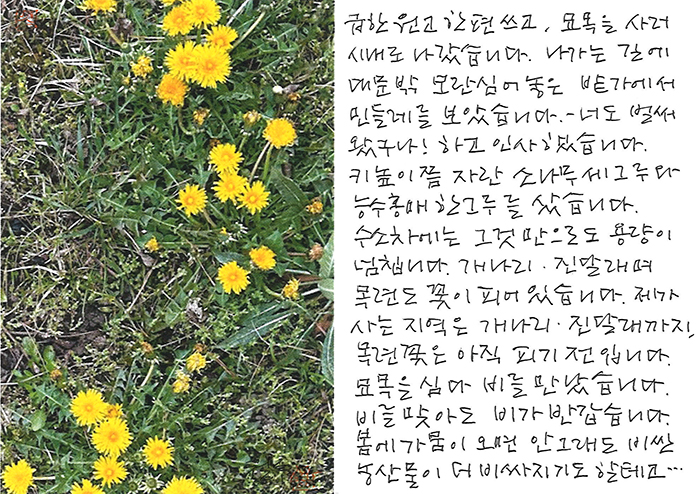 급한 원고 한 편 쓰고, 묘목을 사러
시내로 나갔습니다. 나가는 길에
대문밖 모란심어 놓은 밭가에서
민들레를 보았습니다. - 너도 벌써
왔구나! 하고 인사 했습니다.
키높이쯤 자란 소나무 세그루와
능수홍매 한그루를 샀습니다.
수소차에는 그것 만으로도 용량이
넘칩니다. 개나리 · 진달래며
목련도 꽃이 피어 있습니다. 제가
사는 지역은 개나리 · 진달래까지,
목련꽃은 아직 피기 전 입니다.
묘목을 심다 비를 만났습니다.
비를 맞아도 비가 반갑습니다.
봄에 가뭄이 오면 안그래도 비싼
농산물이 더 비싸지기도 할테고…